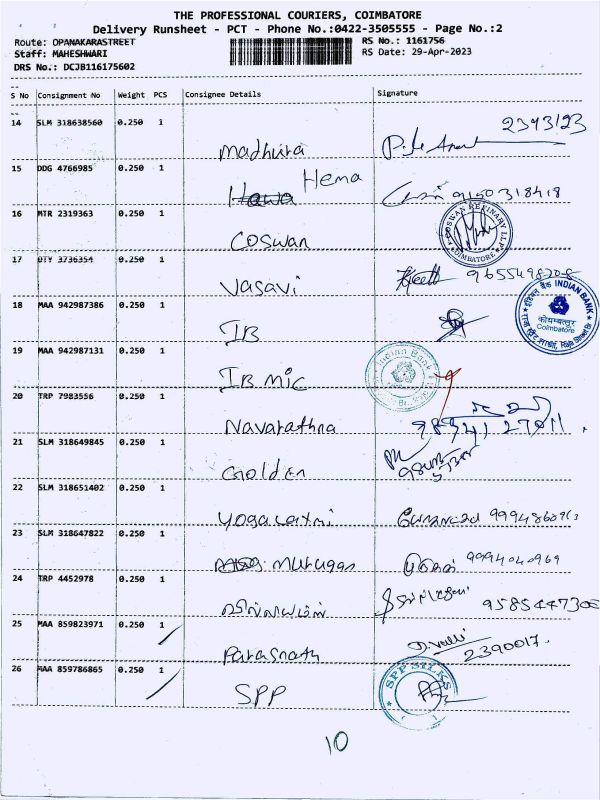 THE PROFESSIONAL COURIERS, COIMBATORE
Delivery Runsheet - PCT - Phone No.:0422-3505555 - Page No.:2
Route: OPANAKARASTREET RS No.: 1161756
Staff: MAHESHWARI RS Date: 29-Apr-2023
DRS No.: DCJB116175602
S No Consignment No Weight PCS Consignee Details Signature
14 SLM 318638560 0.250 1
Madhura
15 DDG 4766985 0.250 1
Hema
9150318418
16 MTR 2319363 0.250 1
Coswan
COSWAN REFINARY LLP
COIMBATORE
17 DTY 3736354 0.250 1
Vasavi
18 MAA 942987386 0.250 1
IB
इंडियन बैंक INDIAN BANK
कोयम्बत्तूर
Coimbatore
19 MAA 942987131 0.250 1
IB MIC
Indian Bank
20 TRP 7983556 0.250 1
Navarathna
21 SLM 318649845 0.250 1
Golden
22 SLM 318651402 0.250 1
Yogalaxmi
23 SLM 318647822 0.250 1
Murugan
9994040969
24 TRP 4452978 0.250 1
9585447306
25 MAA 859823971 0.250 1
Parasnath
D. Valli
2390017.
26 MAA 859786865 0.250 1
SPP
SPP SILKS
10